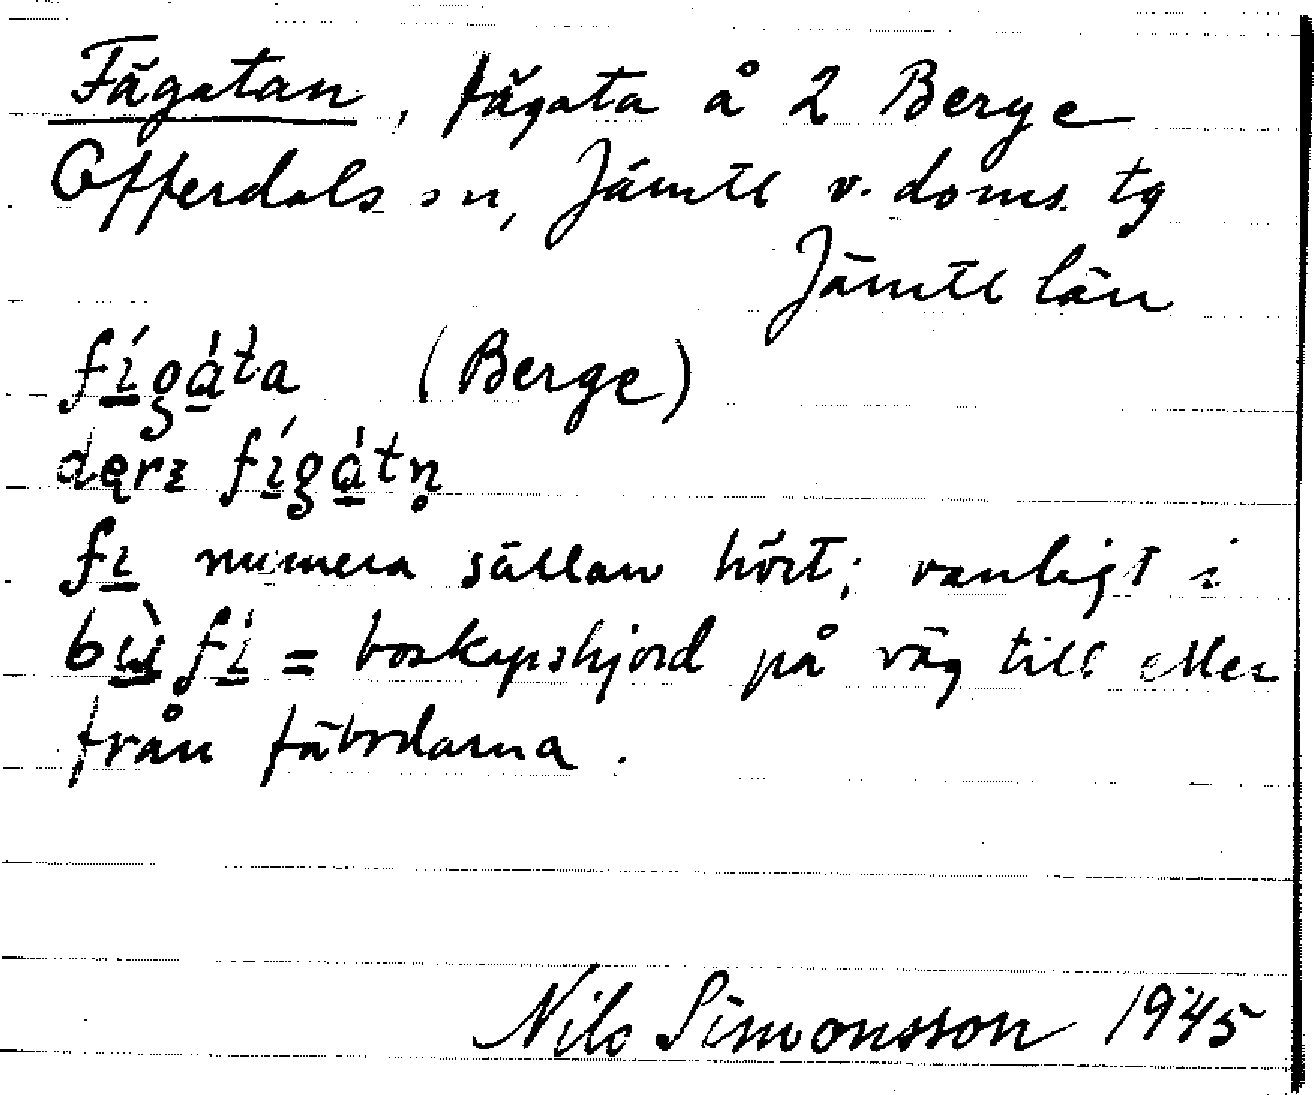 Fägatan, fägata å 2 Berge
Offerdals sn, Jämtl v. doms. tg
Jämtl län
fígáta (Berge)
dęrɪ fígátn̥
fi numera sällan hört; vanligt i
bù̀fí = boskapshjord på väg till eller
från fäbodarna.
Nils Simonsson 1945